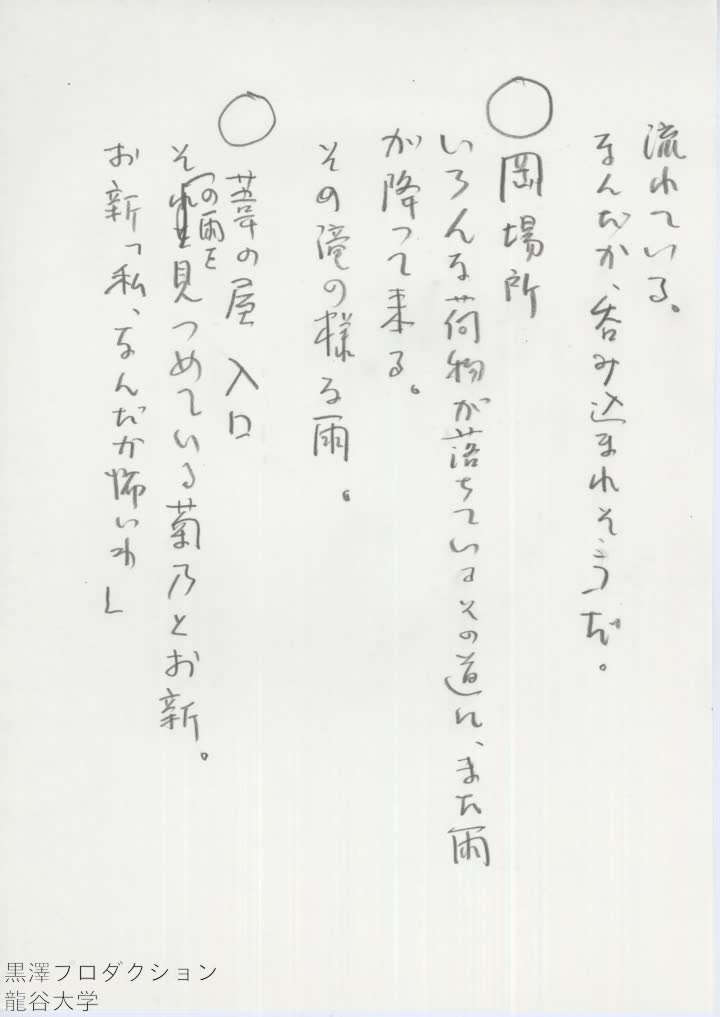 流れている。
なんだか、呑み込まれそうだ。
○岡場所
いろんな荷物が落ちているその道に、また雨
が降って来る。
その滝の様な雨。
○葦の屋 入口
その雨を見つめている菊乃とお新。
お新「私、なんだか怖いわ」
黒澤プロダクション
龍谷大学